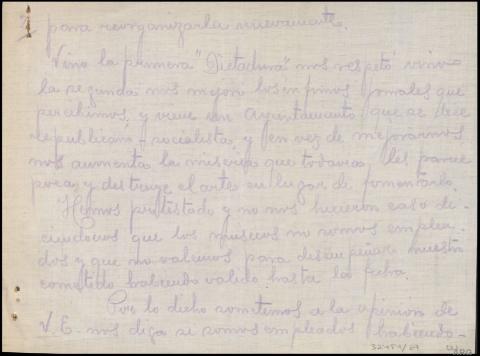 para reorganizarla nuevamente.
Vino la primera "Dictadura" nos respetó vino
la segunda nos mejoró los ínfimos jornales que
percibimos, y viene un Ayuntamiento que se dice
republicano-socialista, y en vez de mejorarnos
nos aumenta la miseria que todavía les parece
poca y destruye el arte en lugar de fomentarlo.
Hemos protestado y no nos hicieron caso di-
ciendonos que los musicos no somos emplea-
dos y que no valemos para desempeñar nuestro
cometido habiendo valido hasta la fecha.
Por lo dicho sometemos a la opinion de
V. E. nos diga si somos empleados habiendo-